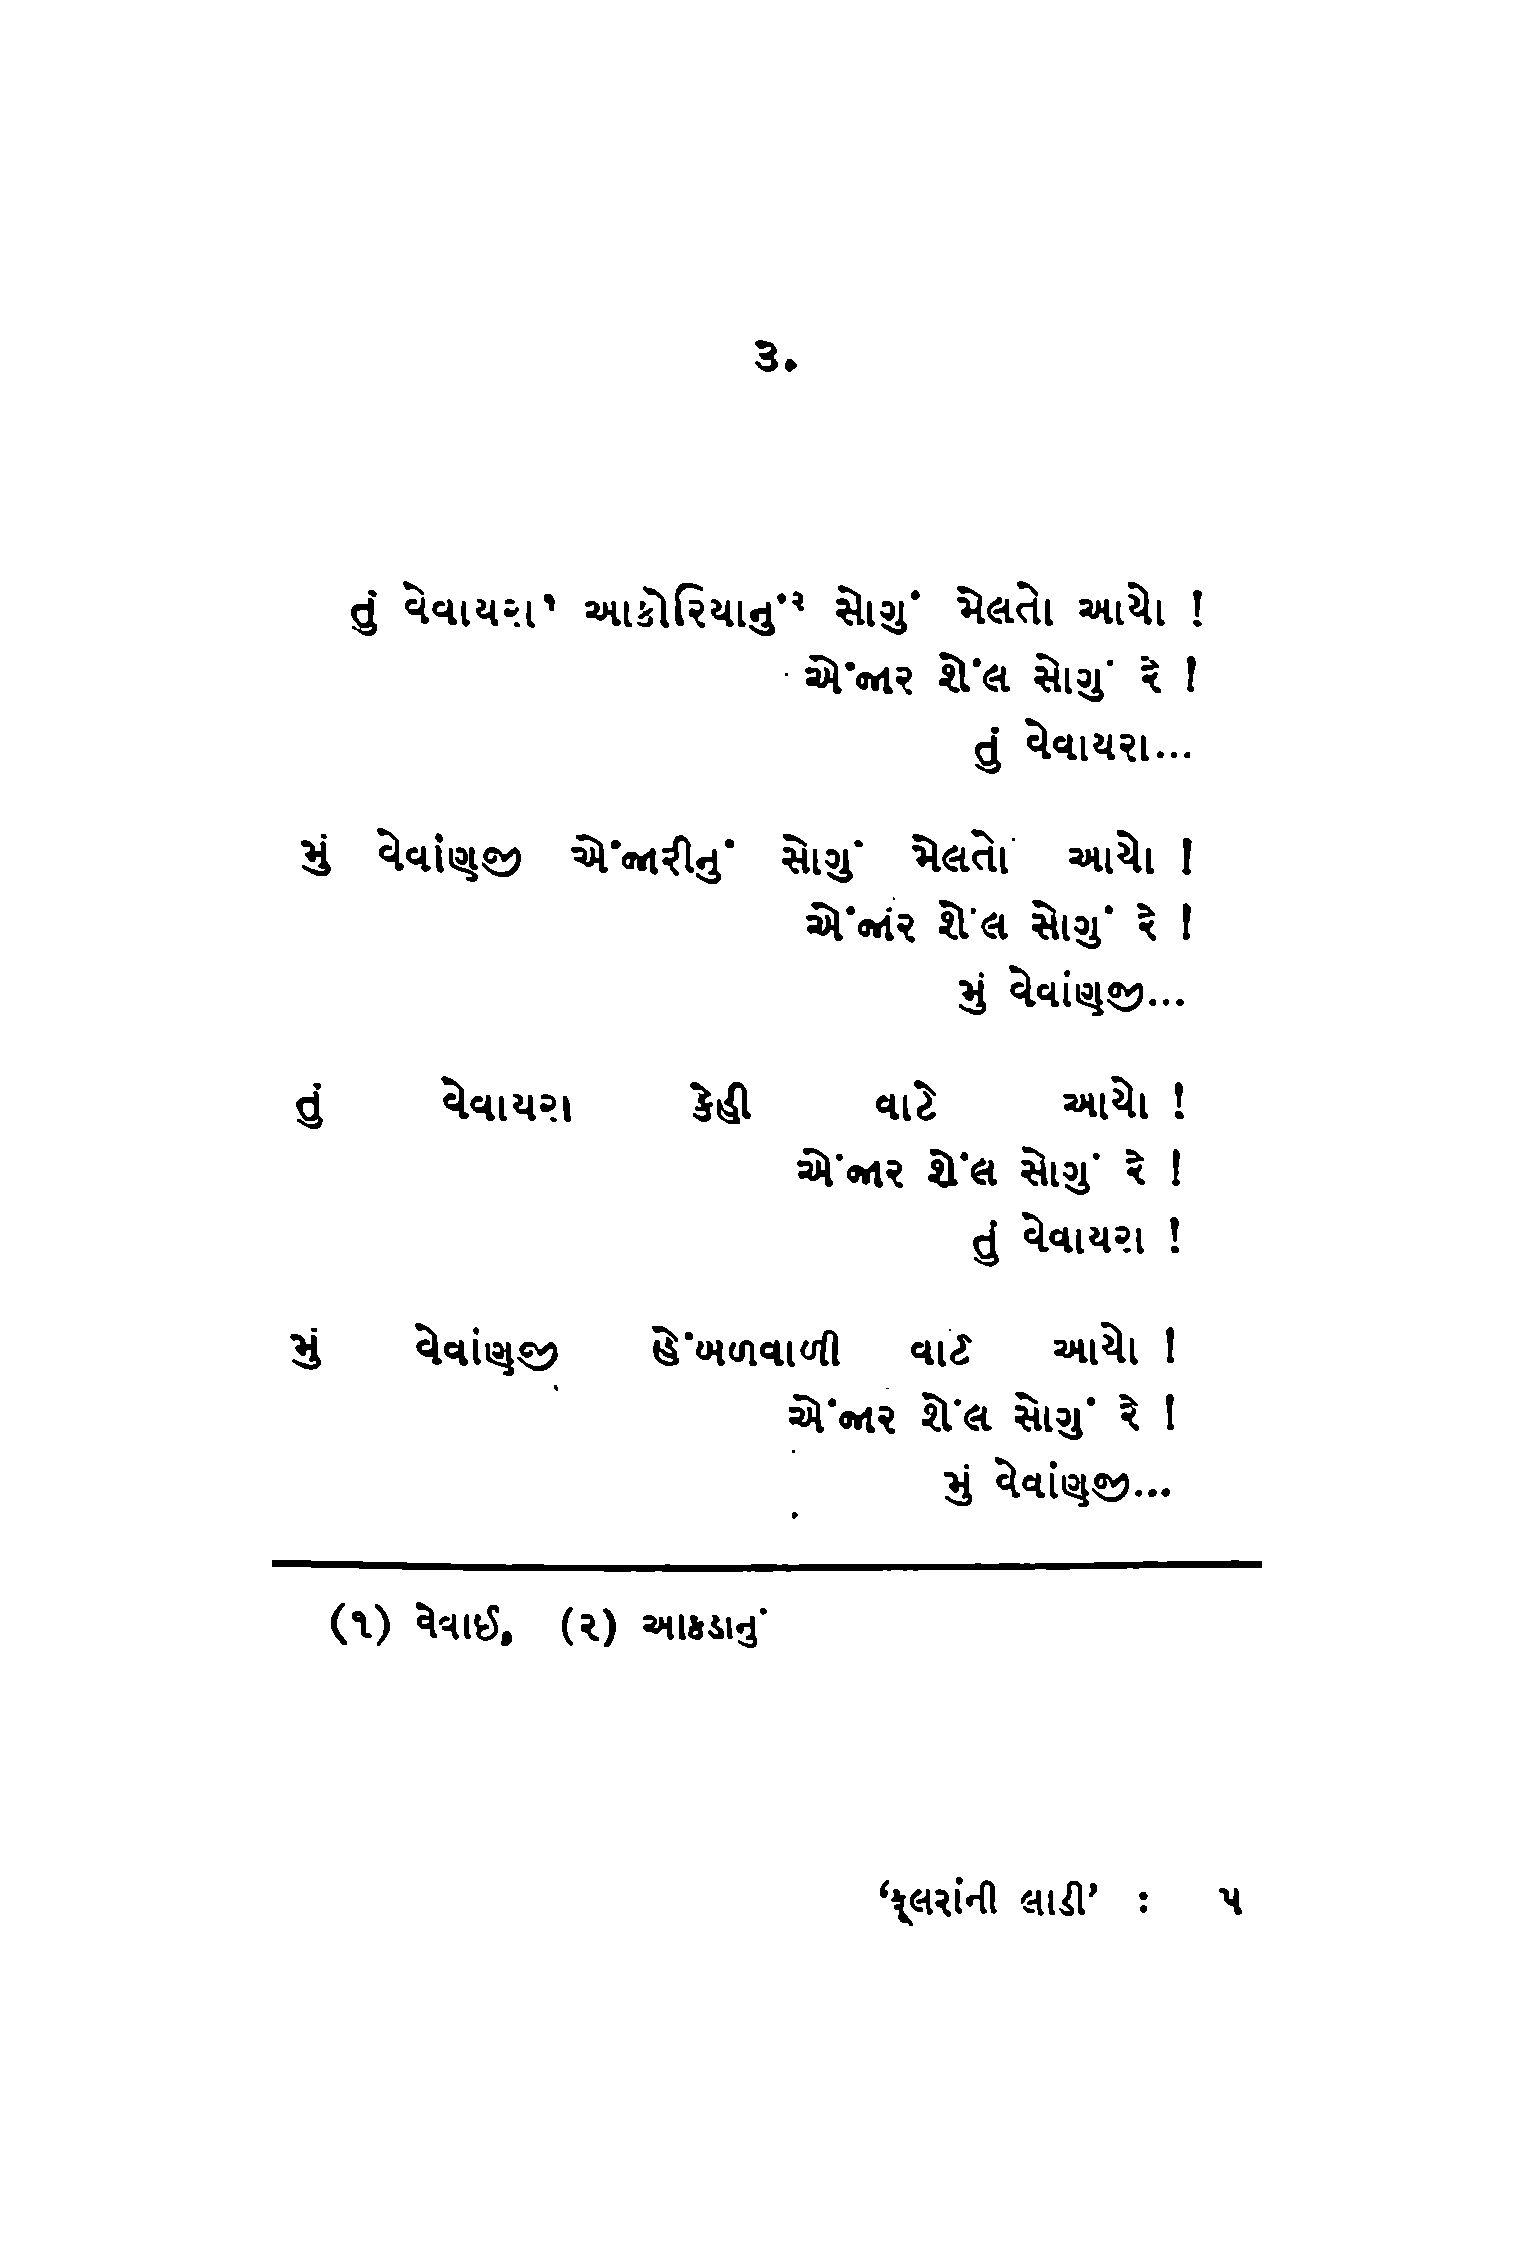 ૩.
તું વેવાયરા¹ આકોરિયાનું² સોગું મેલતો આયો !
એંજાર શેંલ સોગું રે !
તું વેવાયરા...
મું વેવાંણજી એંજારીનું સોગું મેલતો આયો !
એંજાર શેંલ સોગું રે !
મું વેવાંણજી...
તું વેવાયરા કેહી વાટે આયો !
એંજાર શેંલ સોગું રે !
તું વેવાયરા !
મું વેવાંણજી હેંબળવાળી વાટે આયો !
એંજાર શેંલ સોગું રે !
મું વેવાંણજી...
(૧) વેવાઈ, (૨) આકડાનું
‘ફૂલરાંની લાડી’ : ૫